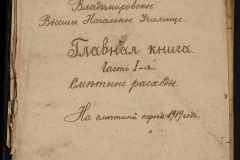 Владимировское
Высшее Начальное Училище.
Главная книга
Часть I-я
Сметные расходы.
На сметный период 1919 года.